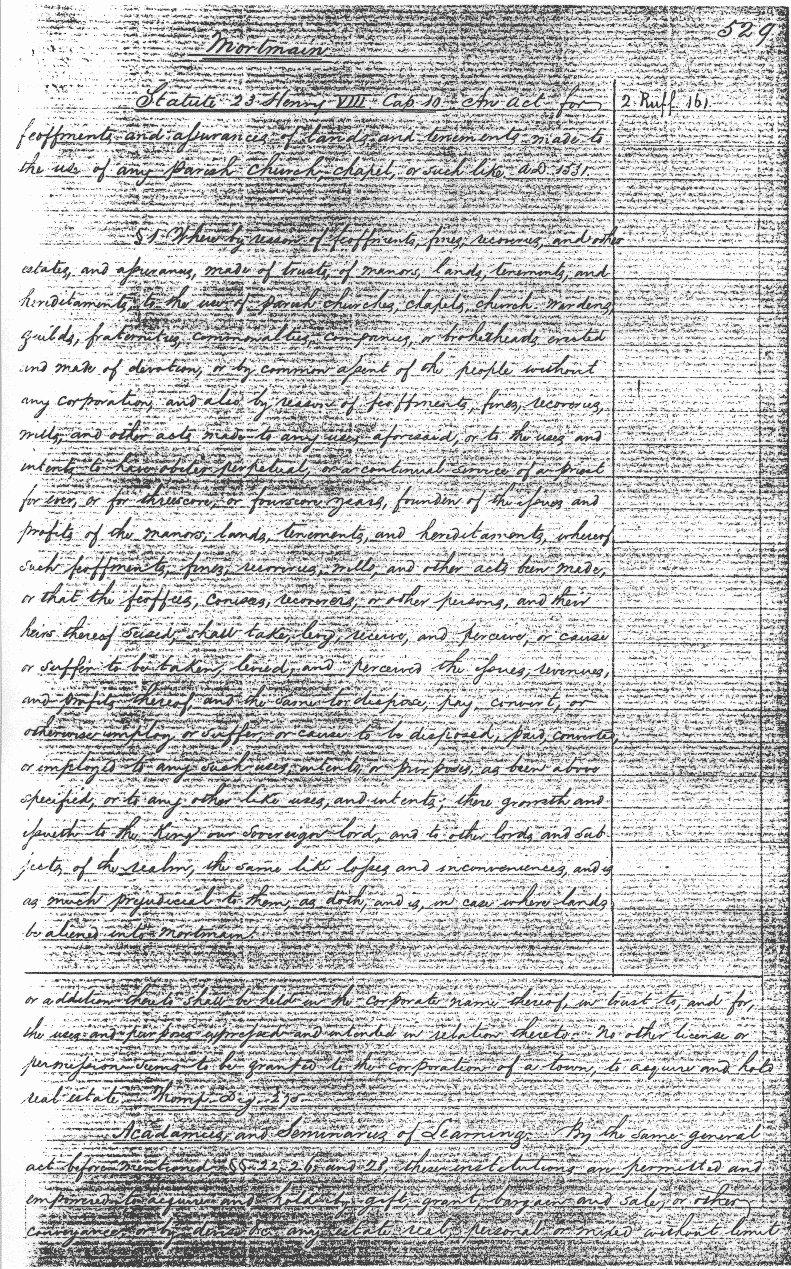 529
Mortmain
Statute 23 Henry VIII Cap 10 An act for
2 Ruff. 161
feoffments and assurances of lands and tenements made to
the use of any parish church, chapel, or such like, A.D. 1531.
§1 Where by reason of feoffments, fines, recoveries, and other
estates, and assurances, made of trusts, of manors, lands, tenements, and
hereditaments, to the use of parish churches, chapels, church wardens,
guilds, fraternities, commonalties, companies, or brotherheads erected
and made of devotion, or by common assent of the people without
any corporation, and also by reason of feoffments, fines, recoveries,
wills, and other acts made to any uses aforesaid, or to the uses and
intents to have obiter perpetual, or a continual service of a priest
for ever, or for threescore, or fourscore years, founden of the issues and
profits of the manors, lands, tenements, and hereditaments, whereof
such feoffments, fines, recoveries, wills, and other acts been made,
or that the feoffees, conisees, recoverers, or other persons, and their
heirs thereof seised, shall take, levy, receive, and perceive, or cause
or suffer to be taken, levied, and perceived the issues, revenues,
and profits thereof, and the same to dispose, pay, convert, or
otherwise employ, or suffer, or cause to be disposed, paid, converted,
or employed to any such uses, intents, or purposes, as been above
specified, or to any other like uses, and intents; there groweth and
issueth to the King our sovereign lord, and to other lords, and sub-
jects of the realm, the same like losses and inconveniences, and is
as much prejudicial to them, as doth, and is, in case where lands
be aliened into mortmain.
or addition thereto shall be held in the corporate name thereof, in trust to, and for,
the uses and purposes expressed and intended in relation thereto. No other license or
permission seems to be granted to the corporation of a town, to acquire and hold
real estate. Thomp. Dig.
Acadamies, and Seminaries of Learning. By the same general
act before mentioned §§ 22, 26, and 28, these institutions are permitted and
empowered to acquire and hold by gift, grant, bargain and sale, or other
conveyance or by devise &c. any estate real, personal or mixed without limit